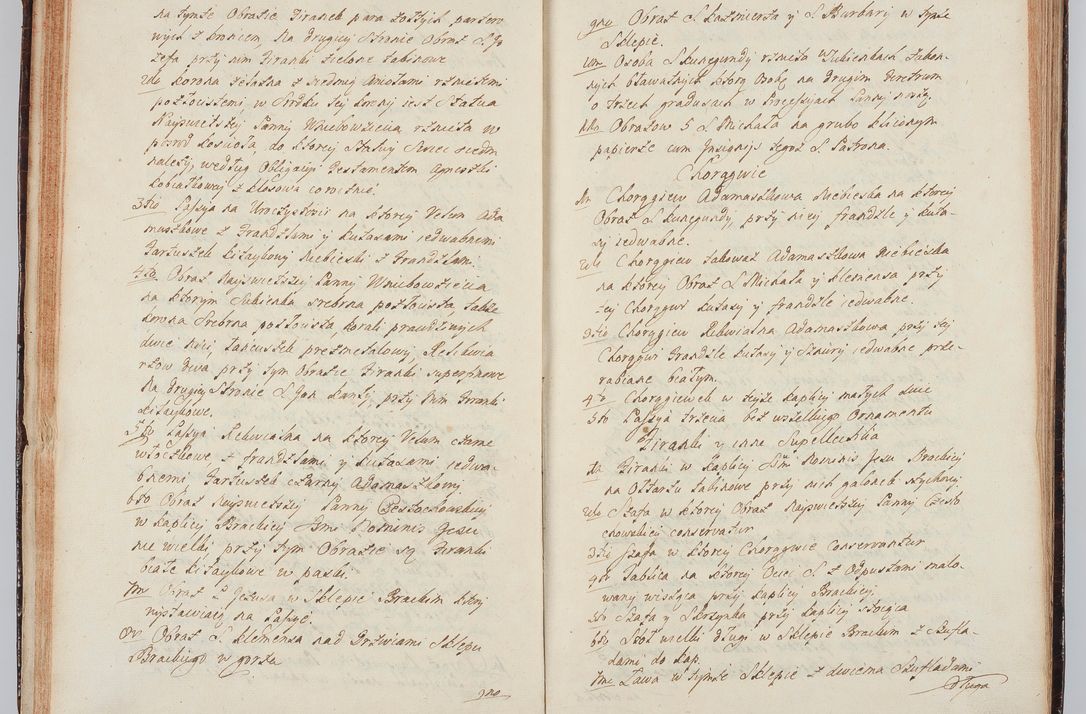 na tymże Obrazie Firanek para żołtych parsero
wych z koniem, Na drugiej Stronie Obraz S. Jo
zefa przy nim Firanki zielone tabinowe
2do Korona żelazna z siedmią Aniołami rzniętemi
pozłocistemi, w srodku tej korony iest Statua
Nayswiętszej Panny Wniebowzięcia rznięta w
posrod kosciola, do ktorey Statuy swiec siedm
należy, według Obligacyi Testamentem Agnieszki
Kobiałkowej z Klosowa corocznie.
3tio Passya na Uroczystosci na ktorej Velum Ada
maszkowe z Frandzlami y kutasami iedwabnemi
Fartuszek kitaykowy Niebieski z Frandzlami.
4to Obraz Nayswiętszej Panny Wniebowzięcia
na ktorym Sukienka srebrna pozłocista, także
korona Srebrna pozłocista, korali prawdziwych
dwie nici, łancuszek pozmetalowy, Relikwia
rzow dwa przy tym Obrazie Firanki superfinowe
Na drugiej Stronie S. Jan Kanty, przy nim Firanki
kitaykowe.
5to Passya Rekwialna na ktorej Velum czarne
włoczkowe, z frandzlami y kutasami iedwa-
bnemi Fartuszek czarny Adamaszkowy
6to Obraz Nayswiętszej Panny Częstochowskiej
w kaplicy Brackiey SSmi Nominis Jesu
nie wielki przy tym Obrazie są Firanki
białe kitaykowe w paski.
7mo Obraz z Jezusa w Sklepie Brackim ktory
wystawiaią na Passyę.
8vo Obraz S. Klemensa nad Drzwiami Sklepu
Brackiego w gorze
9no
9no Obraz S. Kazmierza y S. Barbary w tymże
Sklepie.
10mo Osoba S. Kunegundy rznięta w Sukienkach zakon-
nych bławatnych ktorą Osobę na drugim Feretrum
o trzech gradusach w Processyjach Panny noszą.
11mo Obrazow 5 S. Michała na grubo klijonym
papierze cum Insignijs tegoż S. Patrona.
Chorągwie
1mo Chorągiew Adamaszkowa Niebieska na ktorej
Obraz S. Kunegundy, przy niej frandzle y kuta-
sy iedwabne.
2do Chorągiew takoważ Adamaszkowa Niebieska
na ktorej Obraz S. Michała y Klemensa przy
tej Chorągwi kutasy y frandzle iedwabne.
3tio Chorągiew Rekwialna Adamaszkowa przy tej
Chorągwi Frandzle kutasy y sznury iedwabne prze-
rabiane białym.
4to Chorągiewek w tejże kaplicy małych dwie
5to Passya trzecia bez wszelkiego Ornamentu
Firanki y inne Supellectilia
1mo Firanki w Kaplicy SSmi Nominis Jesu Brackiej
na Ołtarzu tabinowe przy nich galonek szychowy.
2do Szafa w ktorej Obraz Nayswiętszej Panny Często
chowskiej conservatur
3tio Szafa w ktorej Chorągwie conservantur
4to Tablica na ktorej Dzieci S. z Odpustami malo-
wany wisząca przy kaplicy Brackiej.
5to Szafa y Skrzynka przy Kaplicy stoiąca
6to Stoł wielki długi w Sklepie Brackim z szufla-
dami do kap.
7mo Ława w tymże Sklepie z dwiema Szufladami
Długa